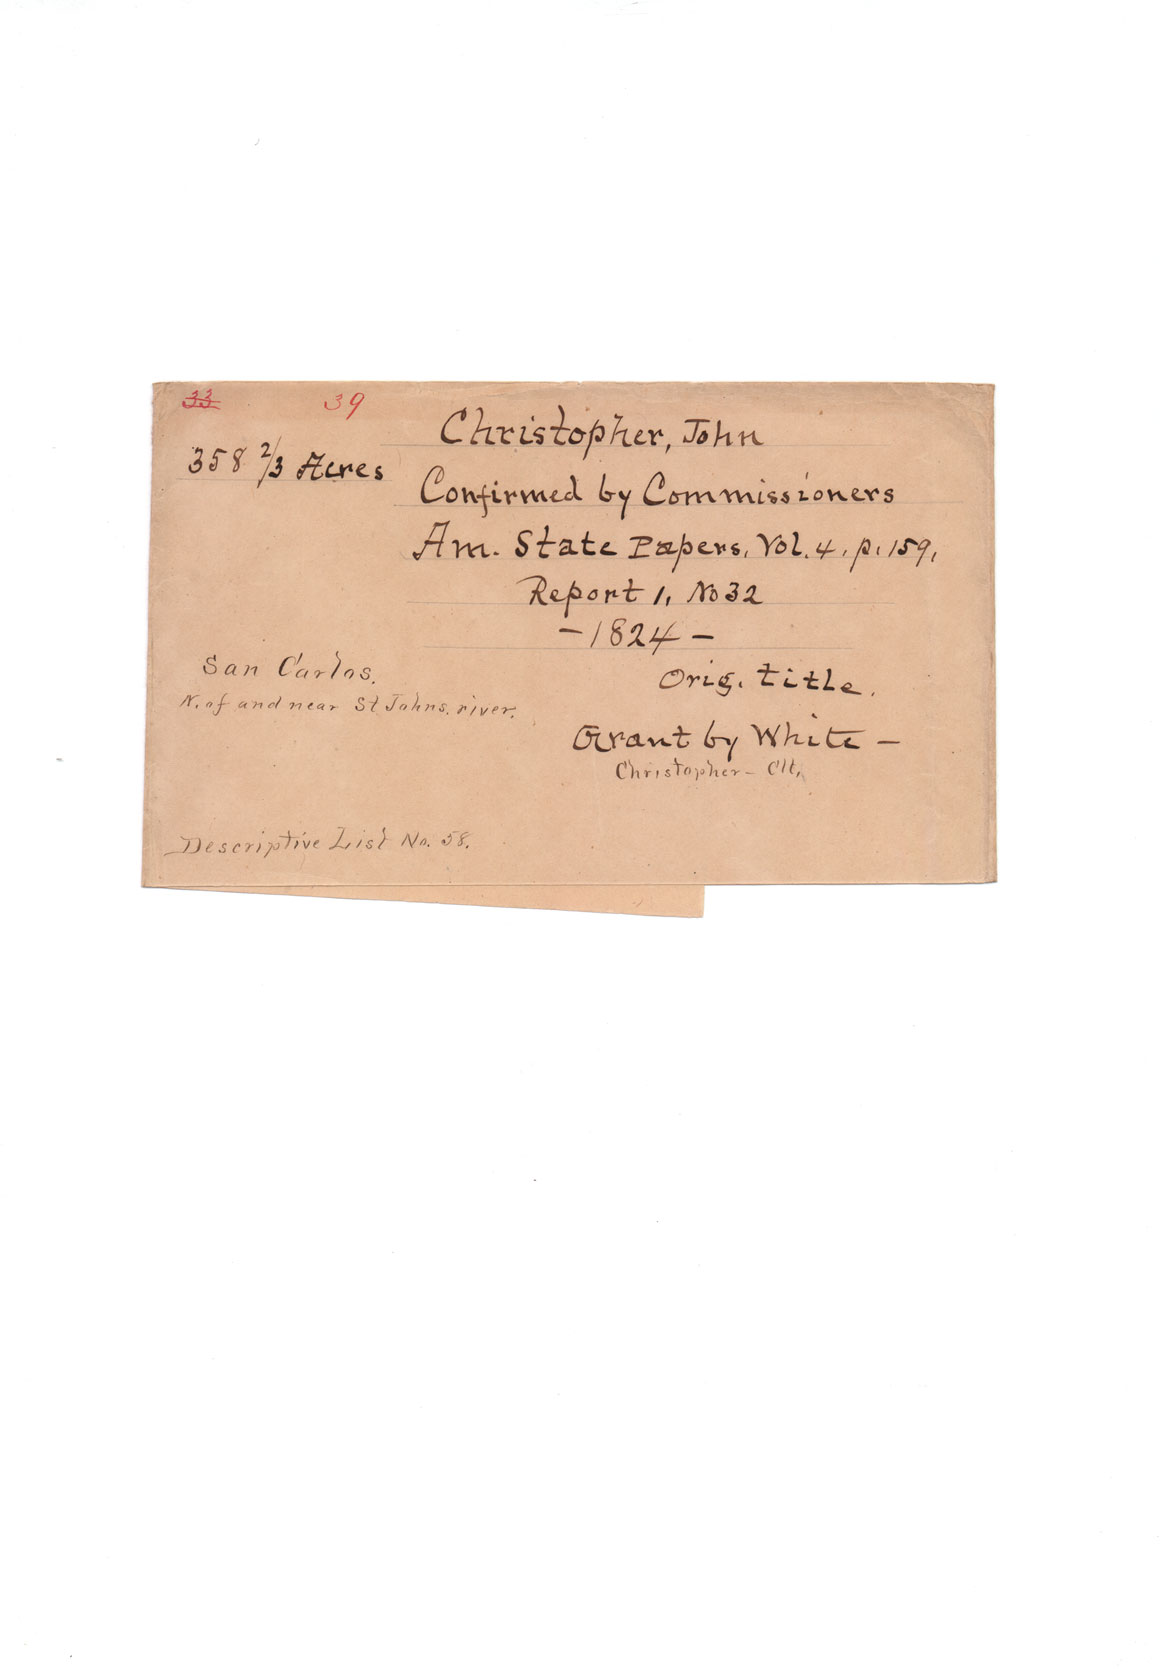 33 39
Christopher, John
358 2/3 Acres
Confirmed by Commissioners
Am. State Papers, Vol. 4, p. 159,
Report 1, No 32
- 1824 -
San Carlos.
Orig. title.
N. of and near St Johns. river.
Grant by White -
Christopher - Clt.
Descriptive List No. 58.